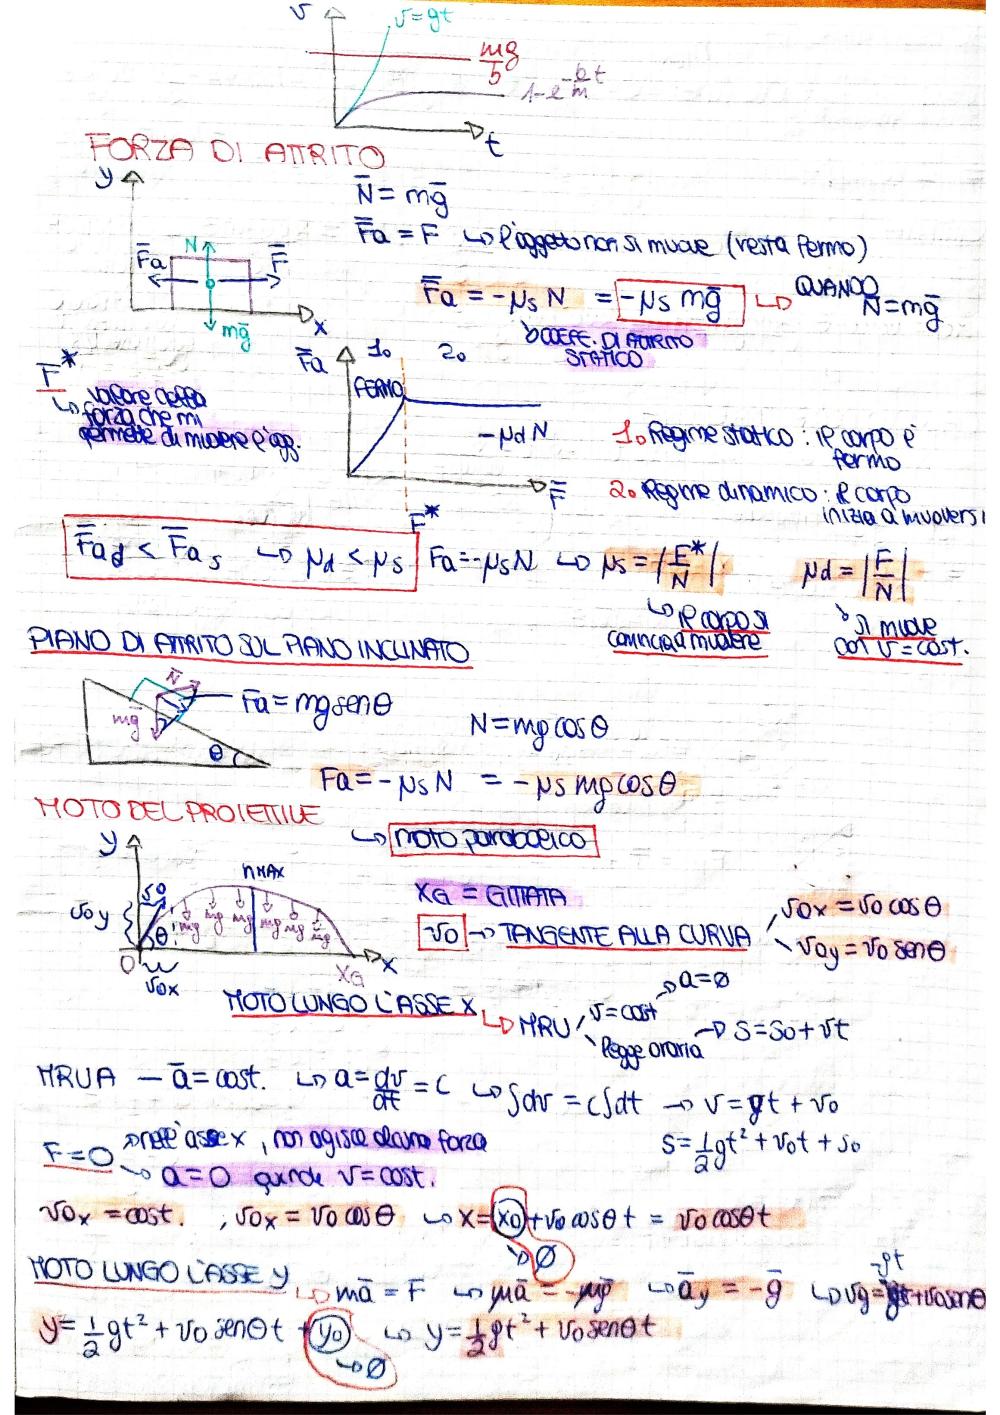 v
v=gt
mg/b
1-e^-b/m t
t
FORZA DI ATTRITO
y
N̄ = mḡ
F̄a = F ↳ l'oggetto non si muove (resta fermo)
F̄a N F̄
mḡ x
F̄a = -μs N = -μs mḡ ↳ QUANDO N̄=mḡ
↳COEFF. DI ATTRITO
STATICO
F̄*
↳ valore della
forza che mi
permette di muovere l'ogg.
F̄a 1. 2.
FERMO
-μd N
F̄
F*
1. Regime statico: il corpo è
fermo
2. Regime dinamico: il corpo
inizia a muoversi
F̄ad < F̄as ↳ μd < μs Fa=-μsN ↳ μs = |F*/N| μd = |F/N|
↳ il corpo si
comincia a muovere
↳ si muove
con v = cost.
PIANO DI ATTRITO SUL PIANO INCLINATO
N̄
mḡ
θ
Fa = mg senθ
N = mg cosθ
Fa = -μs N = -μs mg cosθ
MOTO DEL PROIETTILE
↳ moto parabolico
y
hMAX
v0
v0y
θ
mg mg mg mg mg mg
0 XG x
v0x
XG = GITTATA
v0 → TANGENTE ALLA CURVA
v0x = v0 cosθ
v0y = v0 senθ
MOTO LUNGO L'ASSE X ↳ MRU
v = cost → a=ø
legge oraria → S = S0 + vt
MRUA - ā = cost. ↳ a = dv/dt = c ↳ ∫dv = c∫dt → v = gt + v0
S = 1/2 gt² + v0t + s0
F=0 → nell'asse x, non agisce alcuna forza
↳ a=0 quindi v=cost.
v0x = cost. , v0x = v0 cosθ ↳ x = x0 + v0 cosθ t = v0 cosθ t
↳ ø
MOTO LUNGO L'ASSE y ↳ mā = F̄ ↳ mā = -mḡ ↳ āy = -ḡ ↳ vy = -gt + v0 senθ
y = 1/2 gt² + v0 senθ t + y0 ↳ y = 1/2 gt² + v0 senθ t
↳ ø